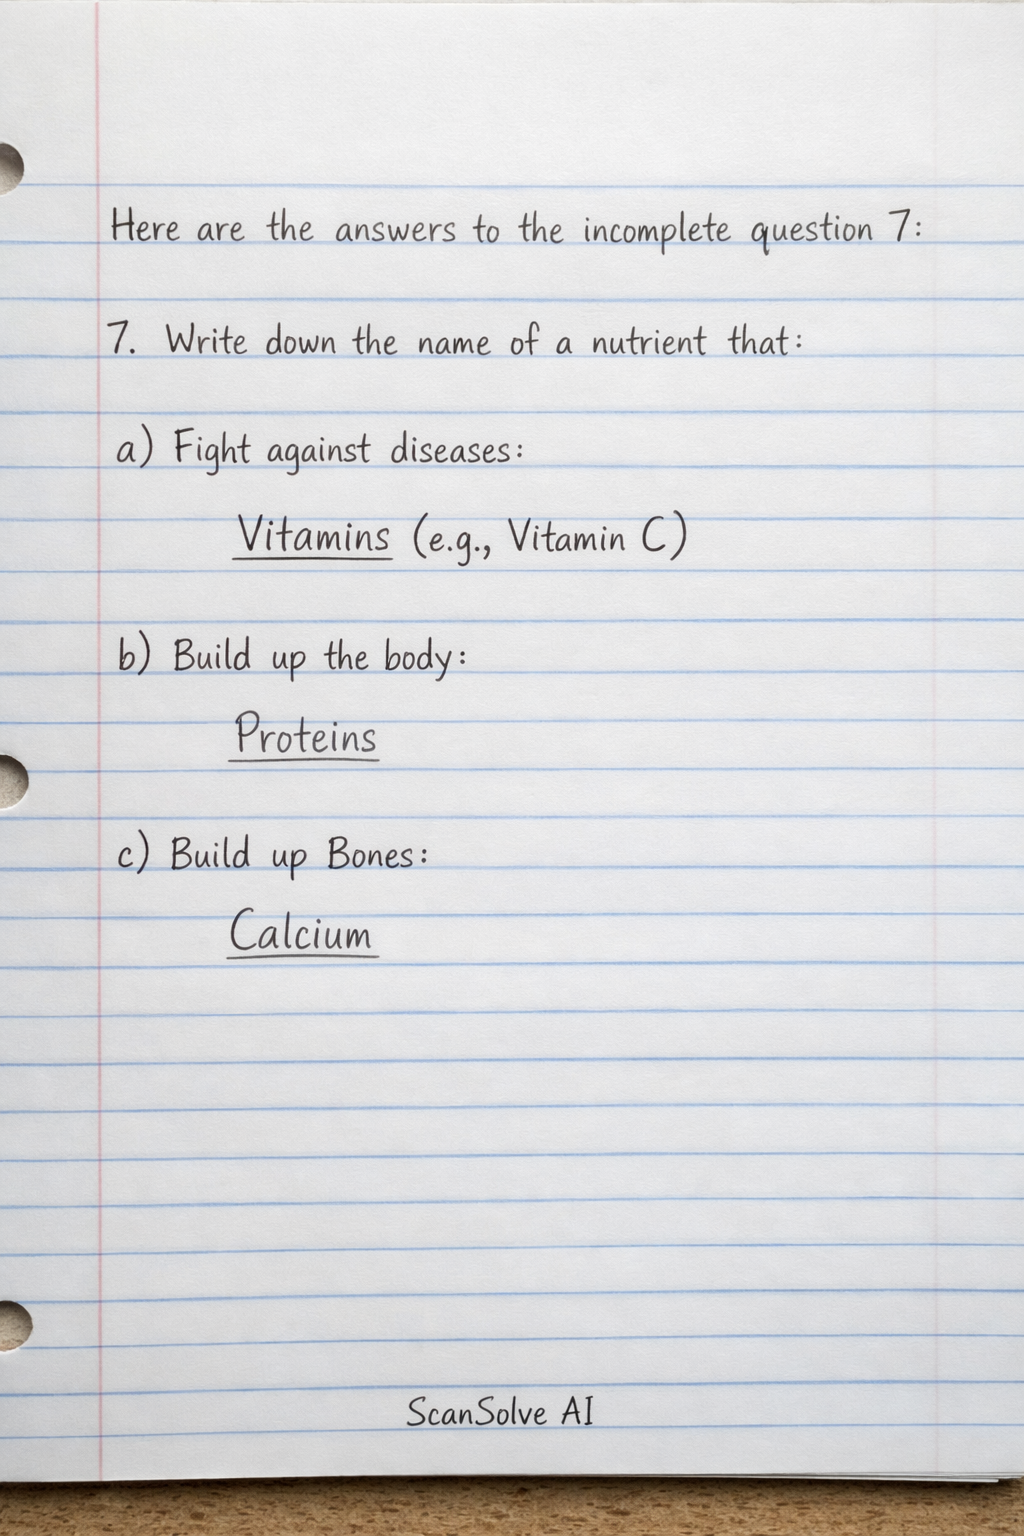 Here are the answers to the incomplete question 7:
7. Write down the name of a nutrient that:
a) Fight against diseases:
Vitamins (e.g., Vitamin C)
b) Build up the body:
Proteins
c) Build up Bones:
Calcium
ScanSolve AI